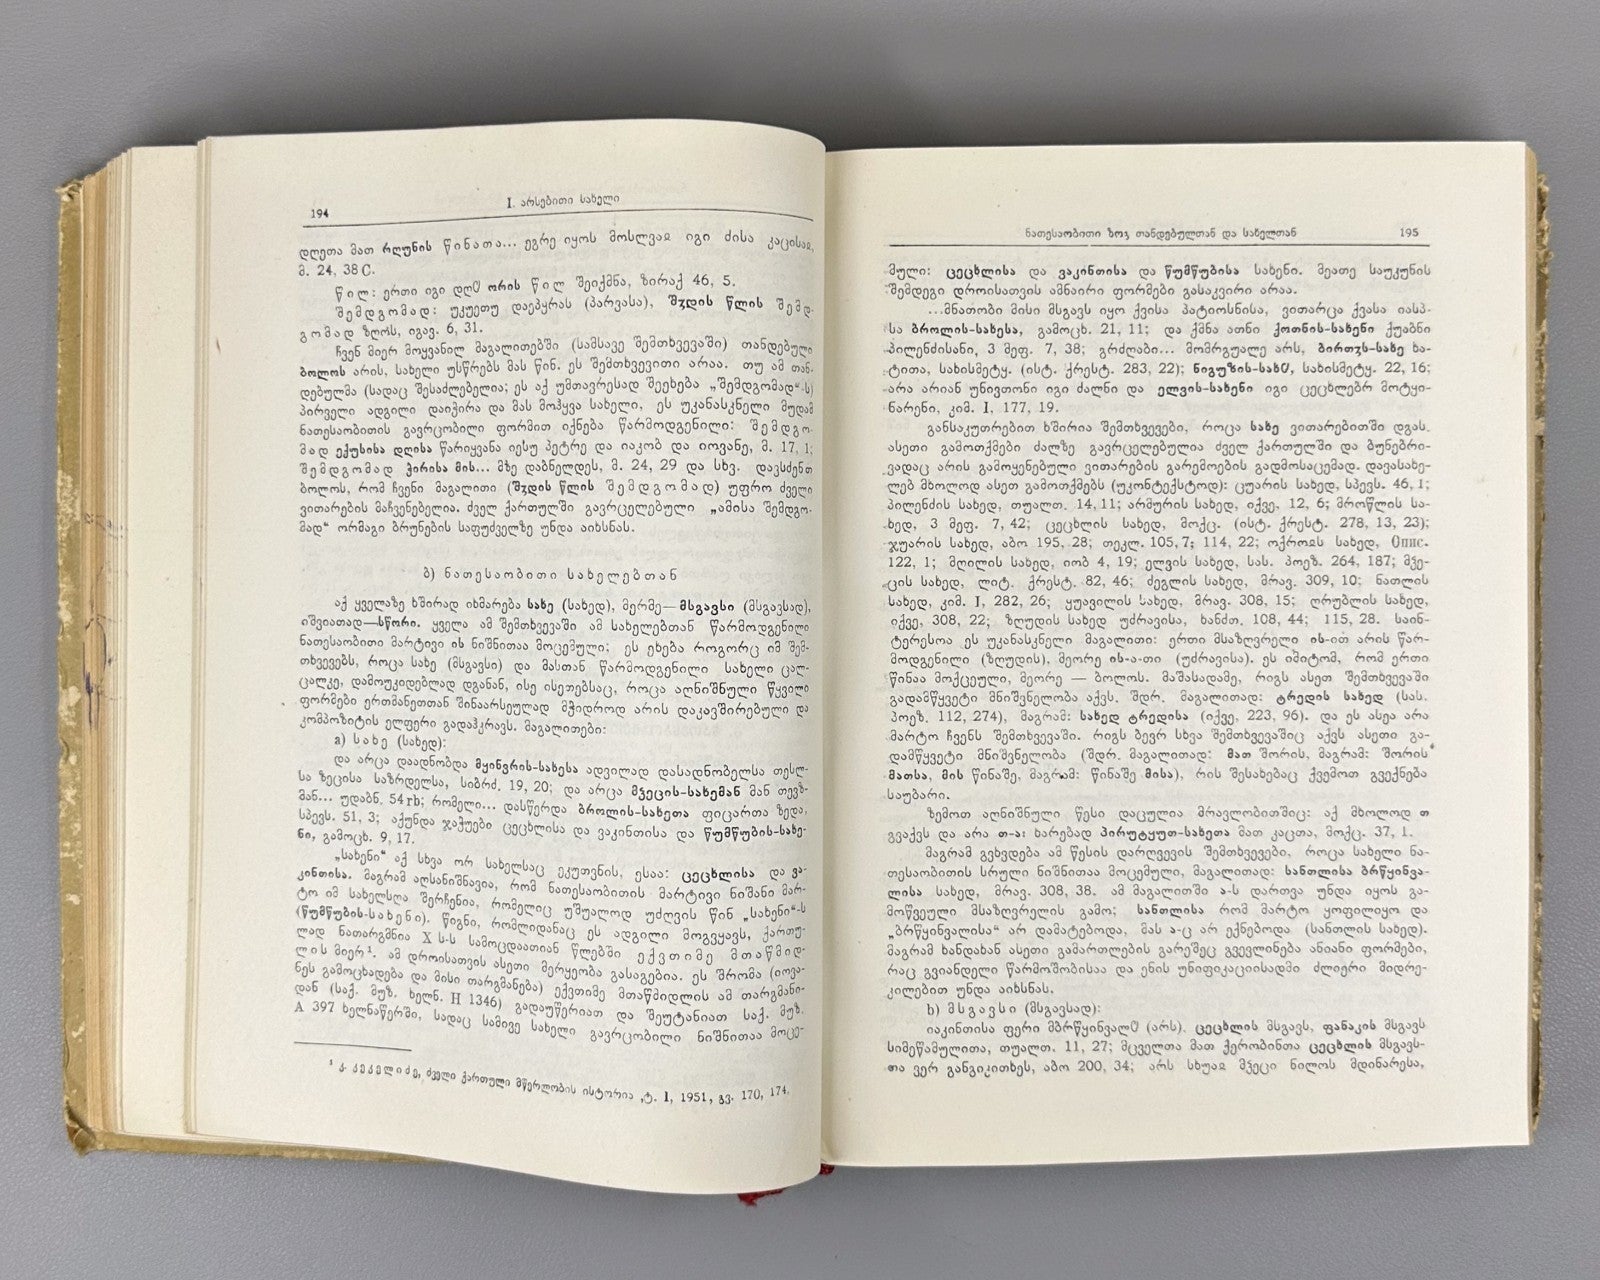 194
I. არსებითი სახელი
დღეთა მათ რღუნის წინათა... ეგრე იყოს მოსლვაჲ იგი ძისა კაცისაჲ,
მ. 24, 38 C.
წილ: ერთი იგი დღჱ ორის წილ შეიქმნა, ზირაქ 46, 5.
შემდგომად: უკუეთუ დაეპყრას (პარვასა), შჳდის წლის შემდ-
გომად ზღოს, იგავ. 6, 31.
ჩვენ მიერ მოყვანილ მაგალითებში (სამსავე შემთხვევაში) თანდებული
ბოლოს არის, სახელი უსწრებს მას წინ. ეს შემთხვევითი არაა. თუ ამ თან-
დებულმა (სადაც შესაძლებელია; ეს აქ უმთავრესად შეეხება „შემდგომად“-ს)
პირველი ადგილი დაიჭირა და მას მოჰყვა სახელი, ეს უკანასკნელი მუდამ
ნათესაობითის გავრცობილი ფორმით იქნება წარმოდგენილი: შემდგო-
მად ექუსისა დღისა წარიყვანა იესუ პეტრე და იაკობ და იოვანე, მ. 17, 1;
შემდგომად ჭირისა მის... მზე დაბნელდეს, მ. 24, 29 და სხვ. დავსძენთ
ბოლოს, რომ ჩვენი მაგალითი (შჳდის წლის შემდგომად) უფრო ძველი
ვითარების მაჩვენებელია. ძველ ქართულში გავრცელებული „ამისა შემდგო-
მად“ ორმაგი ბრუნების საფუძველზე უნდა აიხსნას.
ბ) ნათესაობითი სახელებთან
აქ ყველაზე ხშირად იხმარება სახე (სახედ), მერმე—მსგავსი (მსგავსად),
იშვიათად—სწორი. ყველა ამ შემთხვევაში ამ სახელებთან წარმოდგენილი
ნათესაობითი მარტივი ის ნიშნითაა მოცემული; ეს ეხება როგორც იმ შემ-
თხვევებს, როცა სახე (მსგავსი) და მასთან წარმოდგენილი სახელი ცალ-
ცალკე, დამოუკიდებლად დგანან, ისე ისეთებსაც, როცა აღნიშნული წყვილი
ფორმები ერთმანეთთან შინაარსეულად მჭიდროდ არის დაკავშირებული და
კომპოზიტის ელფერი გადაჰკრავს. მაგალითები:
a) სახე (სახედ):
და არცა დაადნობდა მყინვრის-სახესა ადვილად დასადნობელსა თესლ-
სა ზეცისა საზრდელსა, სიბრძ. 19, 20; და არცა მჴეცის-სახემან მან თევზ-
მან... უდაბნ. 54rb; რომელი... დასწერდა ბროლის-სახეთა ფიცართა ზედა,
სპევს. 51, 3; აქუნდა ჯაჭუები ცეცხლისა და ვაკინთისა და წუმწუბის-სახე-
ნი, გამოცხ. 9, 17.
„სახენი“ აქ სხვა ორ სახელსაც ეკუთვნის, ესაა: ცეცხლისა და ვა-
კინთისა. მაგრამ აღსანიშნავია, რომ ნათესაობითის მარტივი ნიშანი მარ-
ტო იმ სახელსღა შერჩენია, რომელიც უშუალოდ უძღვის წინ „სახენი“-ს
(წუმწუბის-სახენი). წიგნი, რომლიდანაც ეს ადგილი მოგვყავს, ქართუ-
ლად ნათარგმნია X ს-ს სამოცდაათიან წლებში ექვთიმე მთაწმიდ-
ლის მიერ¹. ამ დროისათვის ასეთი მერყეობა გასაგებია. ეს შრომა (იოვა-
ნეს გამოცხადება და მისი თარგმანება) ექვთიმე მთაწმიდლის ამ თარგმანი-
დან (საქ. მუზ. ხელნ. H 1346) გადაუწერიათ და შეუტანიათ საქ. მუზ.
A 397 ხელნაწერში, სადაც სამივე სახელი გავრცობილი ნიშნითაა მოცე-
¹ კ. კეკელიძე, ძველი ქართული მწერლობის ისტორია ,ტ. I, 1951, გვ. 170, 174.
ნათესაობითი ზოგ თანდებულთან და სახელთან
195
მული: ცეცხლისა და ვაკინთისა და წუმწუბისა სახენი. მეათე საუკუნის
შემდეგი დროისათვის ამნაირი ფორმები გასაკვირი არაა.
...მნათობი მისი მსგავს იყო ქვისა პატიოსნისა, ვითარცა ქვასა იასპ-
სა ბროლის-სახესა, გამოცხ. 21, 11; და ქმნა ათნი ქოთნის-სახენი ქუაბნი
პილენძისანი, 3 მეფ. 7, 38; გრძღაბი... მომრგუალე არს, ბირთჳს-სახე ხა-
ტითა, სახისმეტყ. (ისტ. ქრესტ. 283, 22); ნიგუზის-სახჱ, სახისმეტყ. 22, 16;
არა არიან უნივთონი იგი ძალნი და ელვის-სახენი იგი ცეცხლებრ მოტყი-
ნარენი, კიმ. I, 177, 19.
განსაკუთრებით ხშირია შემთხვევები, როცა სახე ვითარებითში დგას.
ასეთი გამოთქმები ძალზე გავრცელებულია ძველ ქართულში და ბუნებრი-
ვადაც არის გამოყენებული ვითარების გარემოების გადმოსაცემად. დავასახე-
ლებ მხოლოდ ასეთ გამოთქმებს (უკონტექსტოდ): ცუარის სახედ, სპევს. 46, 1;
პილენძის სახედ, თუალთ. 14, 11; არმურის სახედ, იქვე. 12, 6; მროწლის სა-
ხედ, 3 მეფ. 7, 42; ცეცხლის სახედ, მოქც. (ისტ. ქრესტ. 278, 13, 23);
ჯუარის სახედ, აბო 195, 28; თეკლ. 105, 7; 114, 22; ოქროჲს სახედ, Опис.
122, 1; მღილის სახედ, იობ 4, 19; ელვის სახედ, სას. პოეზ. 264, 187; მჴე-
ცის სახედ, ლიტ. ქრესტ. 82, 46; ძეგლის სახედ, მრავ. 309, 10; ნათლის
სახედ, კიმ. I, 282, 26; ყუავილის სახედ, მრავ. 308, 15; ღრუბლის სახედ,
იქვე, 308, 22; ზღუდის სახედ უძრავისა, ხანძთ. 108, 44; 115, 28. საინ-
ტერესოა ეს უკანასკნელი მაგალითი: ერთი მსაზღვრელი ის-ით არის წარ-
მოდგენილი (ზღუდის), მეორე ის-ა-თი (უძრავისა). ეს იმიტომ, რომ ერთი
წინაა მოქცეული, მეორე — ბოლოს. მაშასადამე, რიგს ასეთ შემთხვევაში
გადამწყვეტი მნიშვნელობა აქვს. შდრ. მაგალითად: ტრედის სახედ (სას.
პოეზ. 112, 274), მაგრამ: სახედ ტრედისა (იქვე, 223, 96). და ეს ასეა არა
მარტო ჩვენს შემთხვევაში. რიგს ბევრ სხვა შემთხვევაშიც აქვს ასეთი გა-
დამწყვეტი მნიშვნელობა (შდრ. მაგალითად: მათ შორის, მაგრამ: შორის
მათსა, მის წინაშე, მაგრამ: წინაშე მისა), რის შესახებაც ქვემოთ გვექნება
საუბარი.
ზემოთ აღნიშნული წესი დაცულია მრავლობითშიც: აქ მხოლოდ თ
გვაქვს და არა თ-ა: ხარებად პირუტყუთ-სახეთა მათ კაცთა, მოქც. 37, 1.
მაგრამ გვხვდება ამ წესის დარღვევის შემთხვევები, როცა სახელი ნა-
თესაობითის სრული ნიშნითაა მოცემული, მაგალითად: სანთლისა ბრწყინვა-
ლისა სახედ, მრავ. 308, 38. ამ მაგალითში ა-ს დართვა უნდა იყოს გა-
მოწვეული მსაზღვრელის გამო; სანთლისა რომ მარტო ყოფილიყო და
„ბრწყინვალისა“ არ დამატებოდა, მას ა-ც არ ექნებოდა (სანთლის სახედ).
მაგრამ ხანდახან ასეთი გამართლების გარეშეც გვევლინება ანიანი ფორმები,
რაც გვიანდელი წარმოშობისაა და ენის უნიფიკაციისადმი ძლიერი მიდრე-
კილებით უნდა აიხსნას.
b) მსგავსი (მსგავსად):
იაკინთისა ფერი მბრწყინვალჱ (არს). ცეცხლის მსგავს, ფანაკის მსგავს
სიმეწამულითა, თუალთ. 11, 27; მცველთა მათ ქერობინთა ცეცხლის მსგავს-
თა ვერ განგიკითხეს, აბო 200, 34; არს სხუაჲ მჴეცი ნილოს მდინარესა,